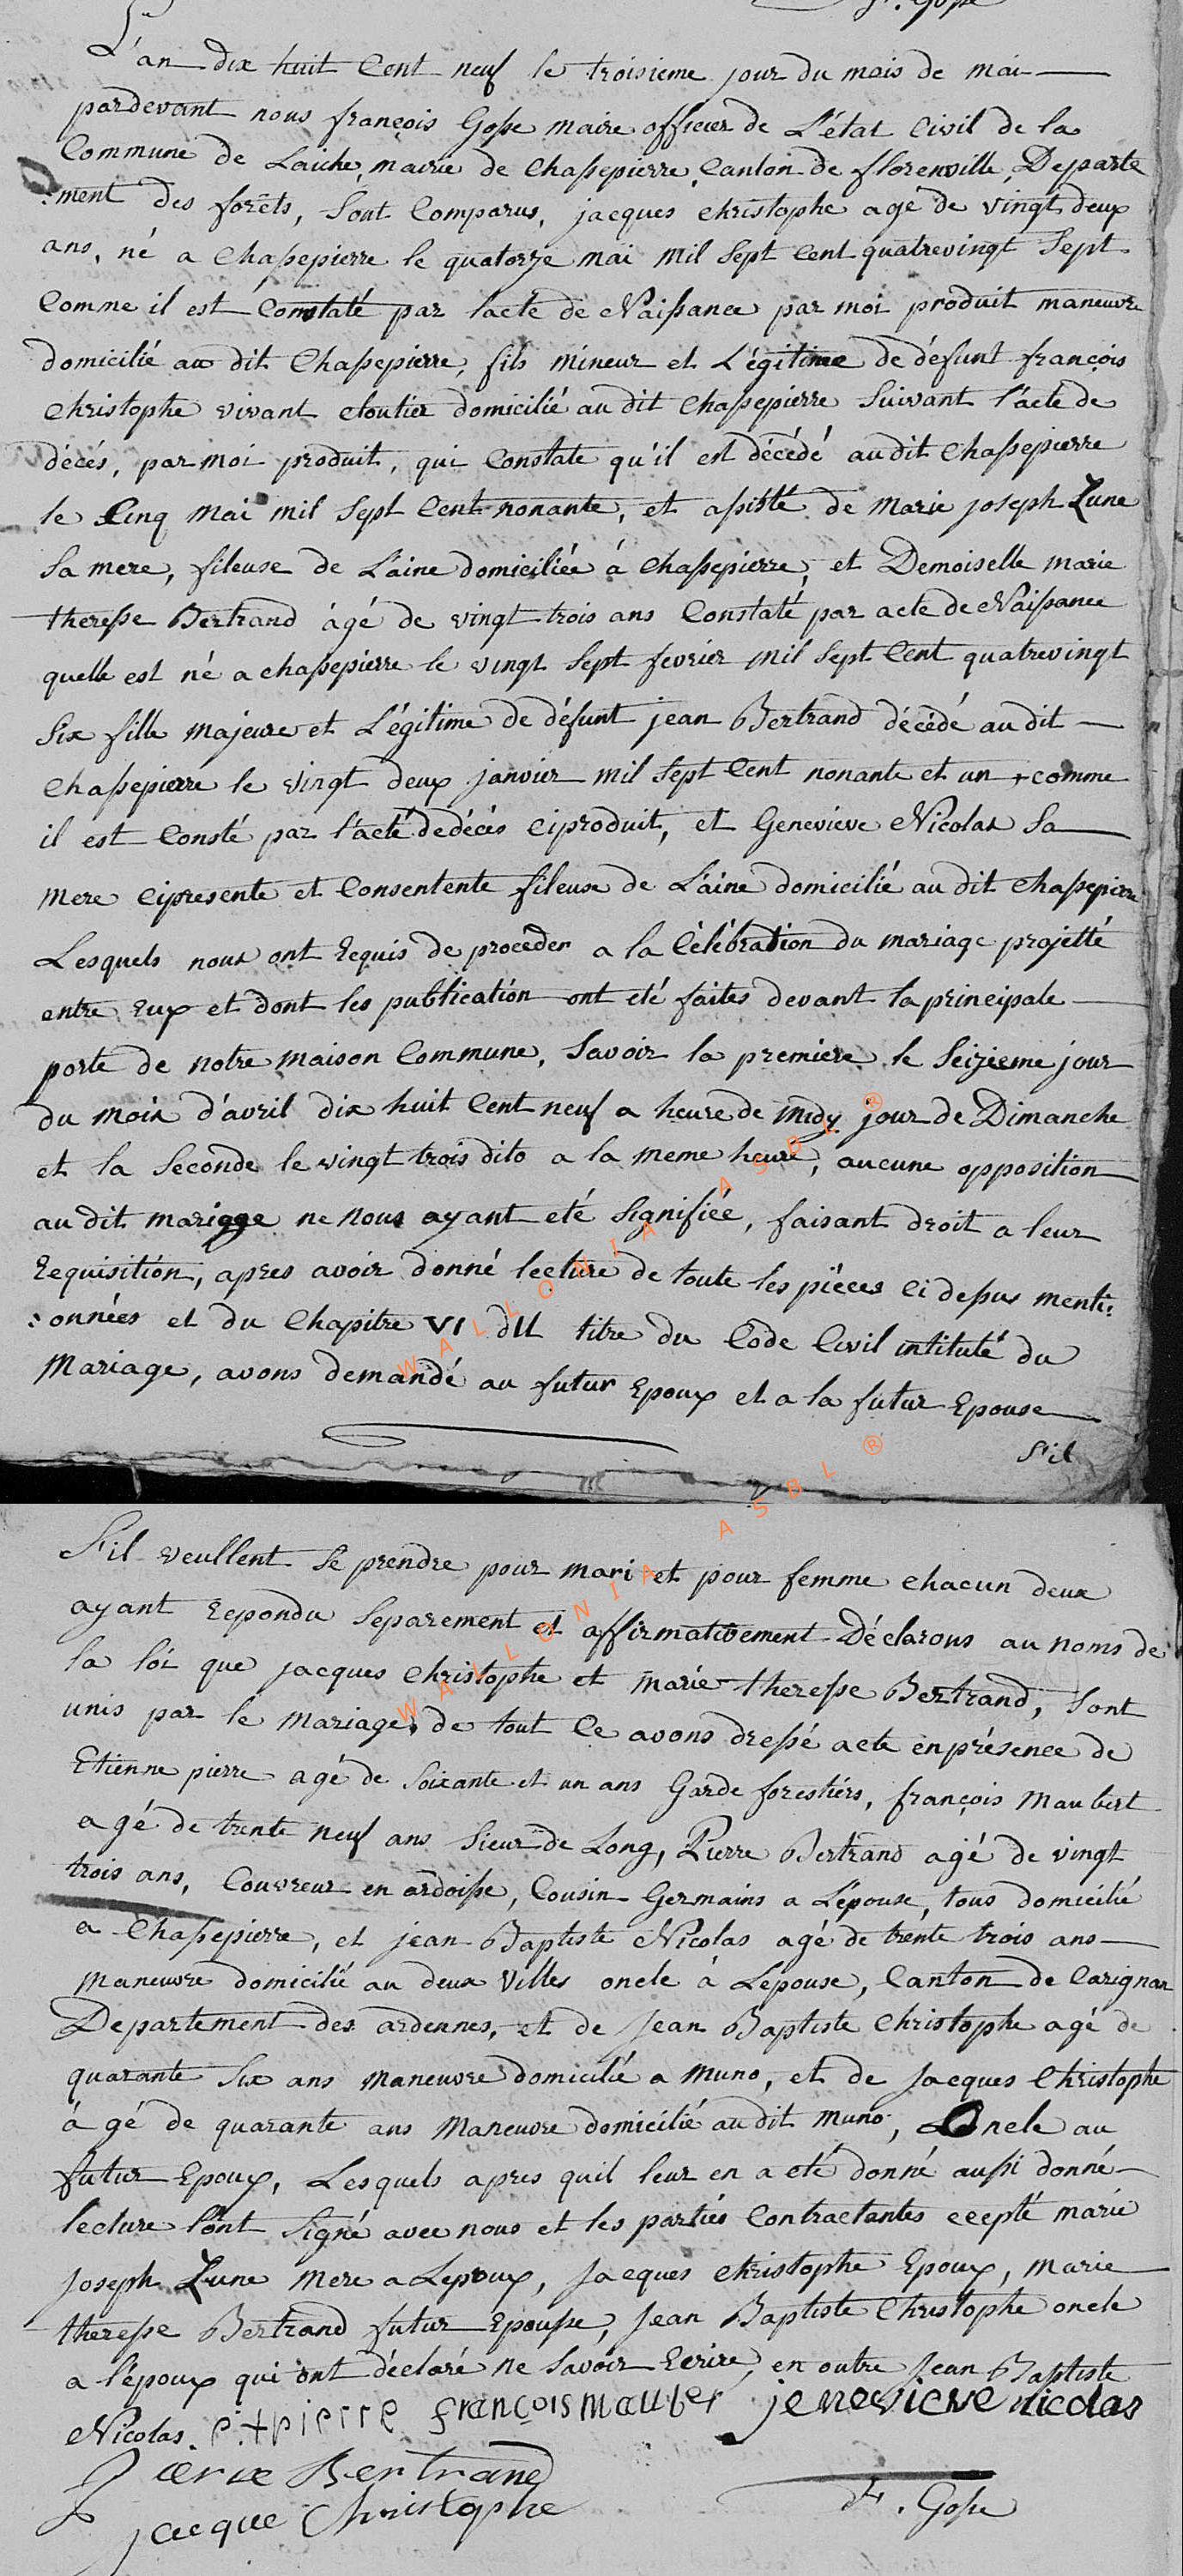 fr. Gosse
L'an dix huit Cent neuf le troisieme jour du mois de mai
pardevant nous françois Gosse maire officier de L'état Civil de la
Commune de Laiche, mairie de Chassepierre, Canton de florenville, Departe
:ment des forêts, Sont Comparus, jacques christophe agé de vingt deux
ans, né a Chassepierre le quatorze mai mil Sept Cent quatrevingt Sept
Comme il est Constaté par l'acte de Naissance par moi produit maneuvre
domicilié au dit Chassepierre, fils mineur et Légitime de défunt françois
christophe vivant cloutier domicilié au dit Chassepierre Suivant l'acte de
décés, par moi produit, qui Constate qu'il est décédé au dit Chassepierre
le Cinq mai mil Sept Cent nonante, et assisté de marie joseph Lune
Sa mere, fileuse de Laine domiciliée á Chassepierre, et Demoiselle marie
theresse Bertrand ágé de vingt trois ans Constaté par acte de Naissance
quelle est né a chassepierre le vingt Sept fevrier mil Sept Cent quatrevingt
Six fille majeure et Légitime de défunt jean Bertrand décédé au dit
Chassepierre le vingt deux janvier mil Sept Cent nonante et un + comme
il est Consté par l'acte de décés ciproduit, et Genevieve Nicolas Sa
mere cipresente et Consentente fileuse de Laine domicilié au dit Chassepierre
Lesquels nous ont Requis de procéder a la Célébration du mariage projetté
entre Eux et dont les publication ont eté faites devant la principale
porte de notre maison Commune, Savoir la premiere le Seizieme jour
du mois d'avril dix huit Cent neuf a heure de midy jour de Dimanche
et la Seconde le vingt trois dito a la meme heure, aucune opposition
au dit mariage ne nous ayant eté Signifiée, faisant droit a leur
Requisition, apres avoir donné lecture de toute les piéces ci dessus menti:
:onnées et du Chapitre VI du titre du Code Civil intitulé du
Mariage, avons demandé au futur Epoux et a la futur Epouse
S'il
S'il veullent Se prendre pour mari et pour femme chacun deux
ayant Repondu Separement et affirmativement Déclarons au noms de
la loi que jacques Christophe et marie theresse Bertrand, Sont
unis par le mariage, de tout Ce avons dressé acte en présence de
Etienne pierre agé de Soixante et un ans Garde forestiérs, françois Maubert
agé de trente neuf ans Sieur de Long, Pierre Bertrand agé de vingt
trois ans, Couvreur en ardoisse, Cousin Germains a Lépouse, tous domicilié
a Chassepierre, et jean Baptiste Nicolas agé de trente trois ans
maneuvre domicilié au deux Villes oncle á Lépouse, Canton de Carignan
Departement des ardennes, et de Jean Baptiste Christophe agé de
quarante Six ans maneuvre domicilié a muno, et de Jacques Christophe
á gé de quarante ans maneuvre domicilié au dit muno, Oncle au
futur Epoux, Lesquels apres quil leur en a eté donné aussi donné
lecture l'ont Signé avec nous et les parties Contractantes ecepté marie
joseph Lune mere a Lepoux, Jacques christophe Epoux, marie
theresse Bertrand futur Epousse, Jean Baptiste Christophe oncle
a l'époux qui ont déclaré ne Savoir Ecrire, en outre Jean Baptiste
Nicolas. et pierre françois maubert jenevieve nicolas
Pierre Bertrand
fr. Gosse
jacque Christophe
WALLONIA ASBL ®
WALLONIA ASBL ®